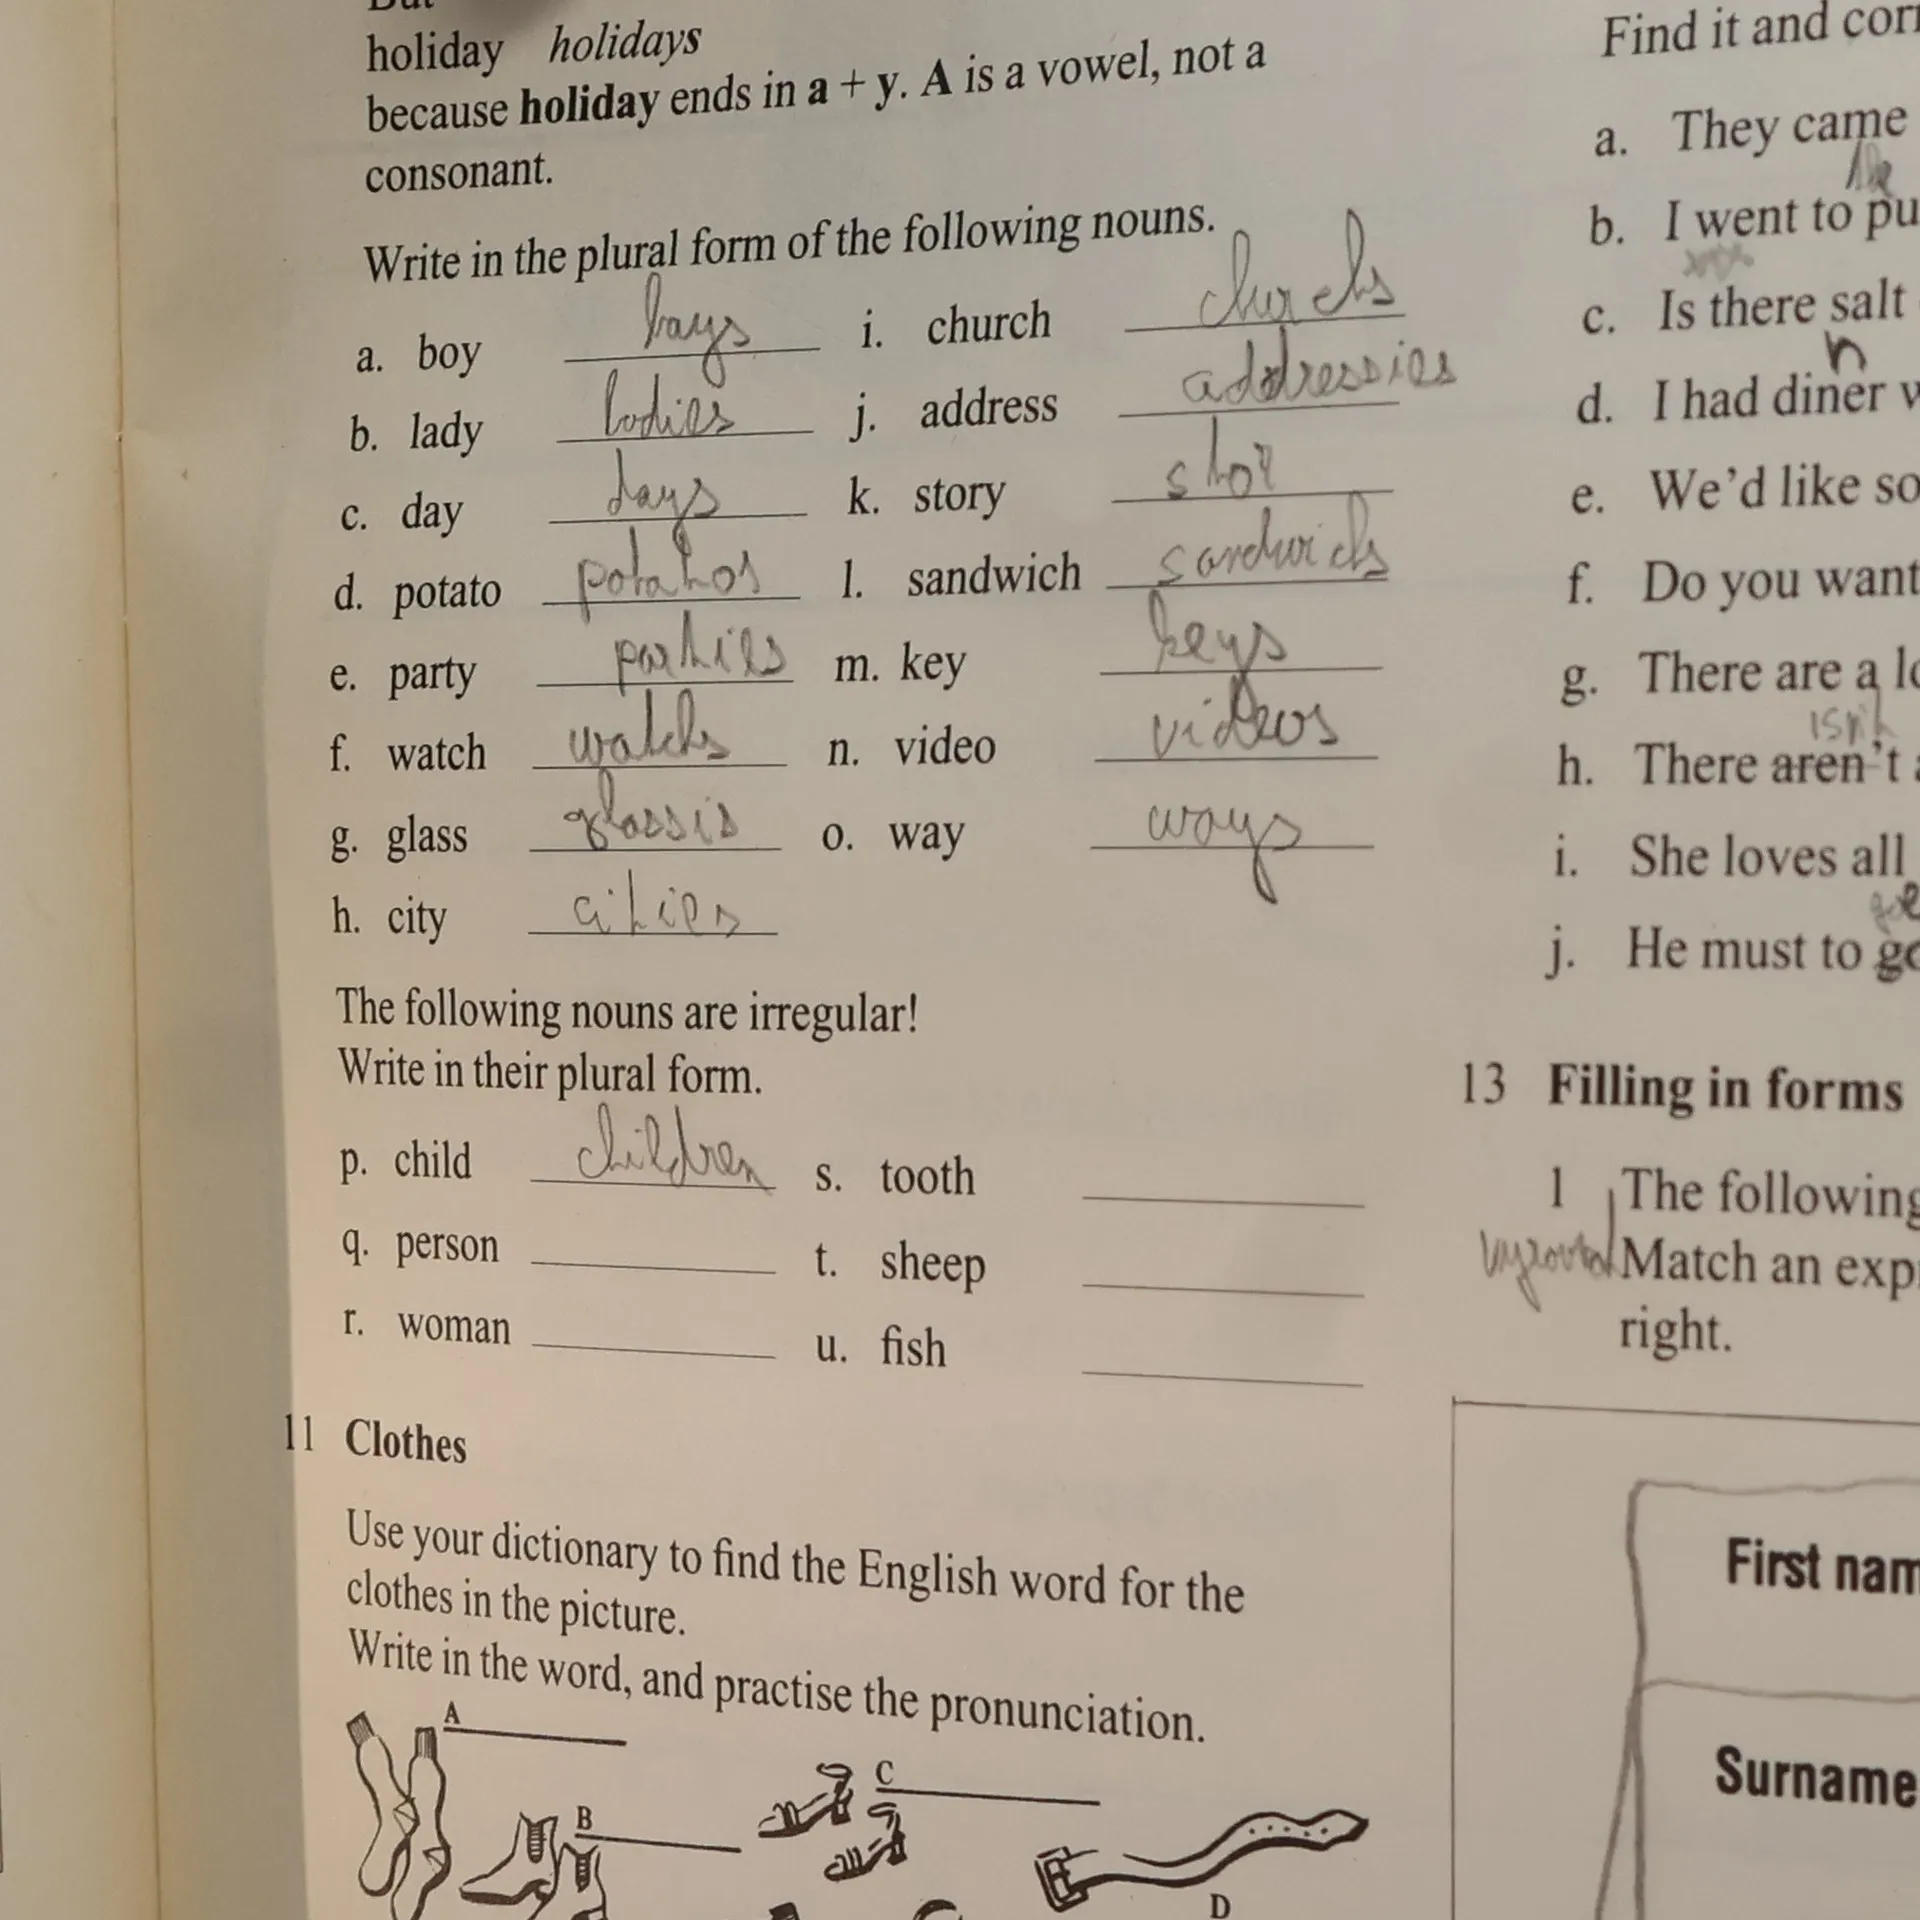 holiday holidays
because holiday ends in a + y. A is a vowel, not a
consonant.
Write in the plural form of the following nouns.
a. boy boys
b. lady ladies
c. day days
d. potato potatos
e. party parties
f. watch watchs
g. glass glassis
h. city cities
i. church churchs
j. address addressies
k. story
l. sandwich sandwichs
m. key keys
n. video videos
o. way ways
The following nouns are irregular!
Write in their plural form.
p. child children
q. person
r. woman
s. tooth
t. sheep
u. fish
11 Clothes
Use your dictionary to find the English word for the
clothes in the picture.
Write in the word, and practise the pronunciation.
A
B
C
D
Find it and
a. They came
b. I went to
c. Is there salt
n
d. I had diner
e. We'd like
f. Do you want
g. There are a
isn't
h. There aren't
i. She loves all
j. He must to
13 Filling in forms
1 The following
Match an
right.
First
Surname